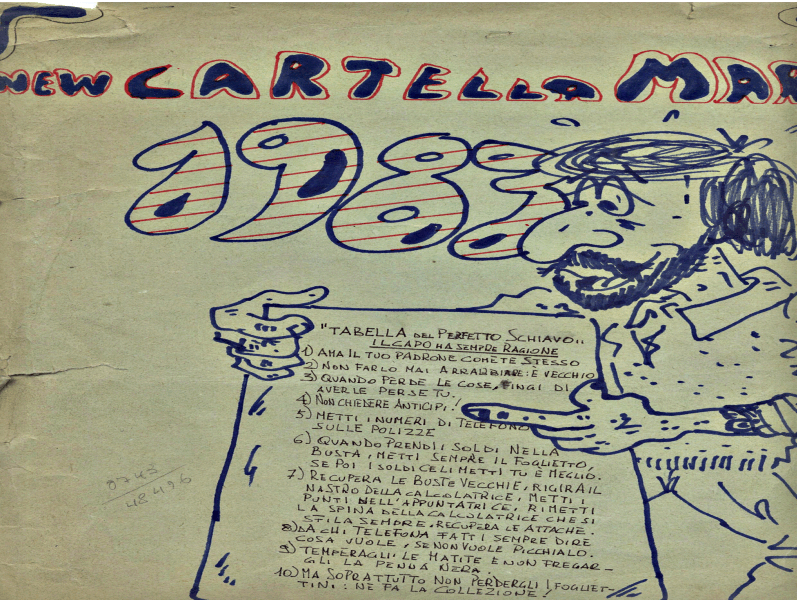 NEW CARTELLA MAR
1983
"TABELLA DEL PERFETTO SCHIAVO"
IL CAPO HA SEMPRE RAGIONE
1) AMA IL TUO PADRONE COME TE STESSO
2) NON FARLO MAI ARRABBIARE: È VECCHIO
3) QUANDO PERDE LE COSE, FINGI DI
AVERLE PERSE TU.
4) NON CHIEDERE ANTICIPI!
5) METTI I NUMERI DI TELEFONO
SULLE POLIZZE
6) QUANDO PRENDI I SOLDI NELLA
BUSTA, METTI SEMPRE IL FOGLIETTO,
SE POI I SOLDI CELI METTI TU È MEGLIO.
7) RECUPERA LE BUSTE VECCHIE, RIGIRA IL
NASTRO DELLA CALCOLATRICE, METTI I
PUNTI NELL'APPUNTATRICE, RIMETTI
LA SPINA DELLA CALCOLATRICE CHE SI
SFILA SEMPRE, RECUPERA LE ATTACHE.
8) DA CHI TELEFONA FATTI SEMPRE DIRE
COSA VUOLE, SE NON VUOLE PICCHIALO.
9) TEMPERAGLI LE MATITE E NON FREGAR-
GLI LA PENNA NERA.
10) MA SOPRATTUTTO NON PERDERGLI I FOGLIET-
TINI: NE FA LA COLLEZIONE!
0743
48496